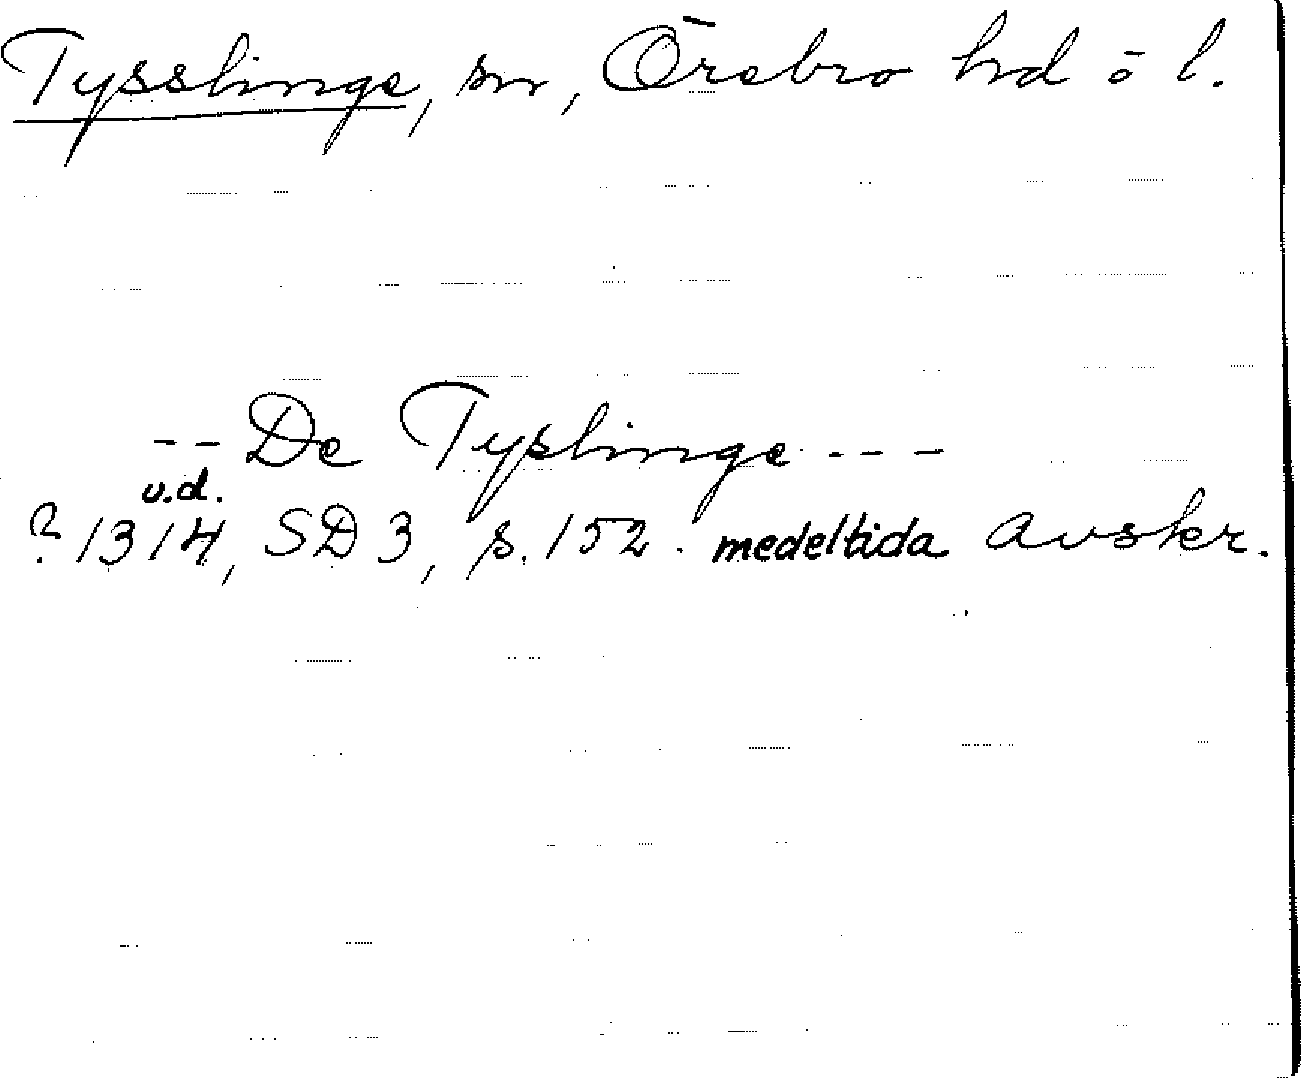 Tysslinge, sn, Örebro hd ō l.
-- De Typlinge ---
u.d.
? 1314, SD 3, s. 152. medeltida avskr.